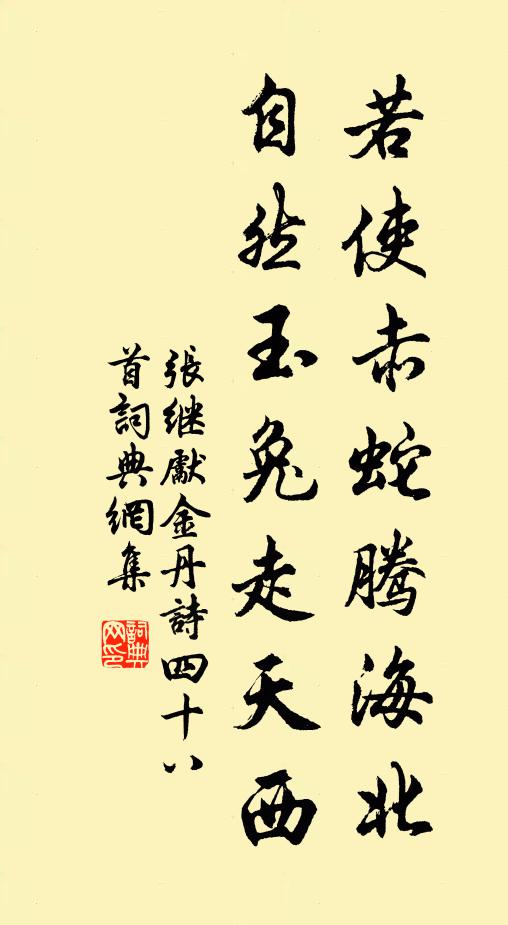 若使赤蛇腾海北
自然玉兔走天西
張继獻金丹詩四十八
首詞典網集
詞典
网印